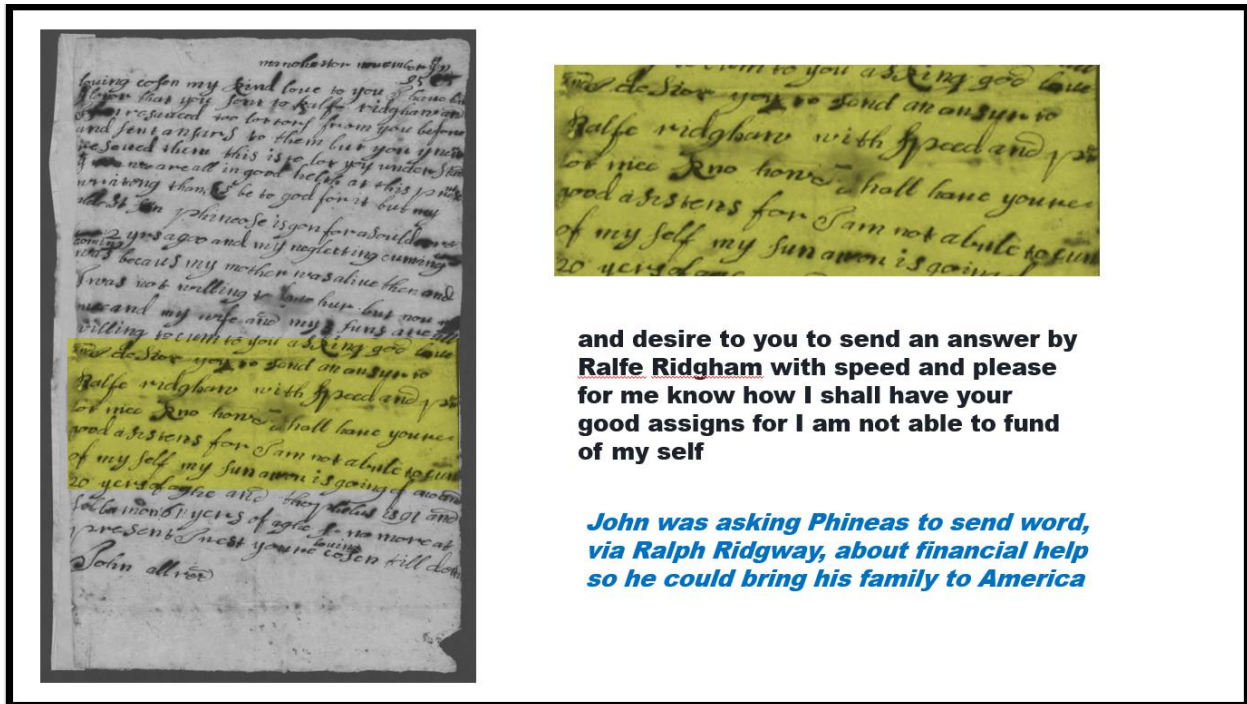 manchester november
95
loving cosen my kind love to you I have
letor that you sent to Ralfe ridghaw and
I resaived too lortors from you before
and sent ansurs to them but you
reseved them this is to let you understand
we are all in good helth at this
writing thanks be to god for it but my
eldest son phineose is gon for a souldare
2 yrs agoo and my neglecting cuming
was becaus my mother was alive then and
I was not willing to leave hur but now
me and my wife and my 3 suns are all
willing to cum to you asking god
and desior you to send an ansur to
Ralfe ridghaw with speed and
lor mee kno howe I shall have youre
good asistens for I am not abule to cum
of my self my sun amon is going of
20 yers of aghe and theophelus is 91 and
sollomon 81 yers of aghe so no more at
present I rest youre loving cosen till
John allred
to cum to you asking god
and desior you to send an ansur to
Ralfe ridghaw with speed and
lor mee kno howe I shall have youre
good asistens for I am not abule to cum
of my self my sun amon is going
20 yers of aghe
and desire to you to send an answer by
Ralfe Ridgham with speed and please
for me know how I shall have your
good assigns for I am not able to fund
of my self
John was asking Phineas to send word,
via Ralph Ridgway, about financial help
so he could bring his family to America